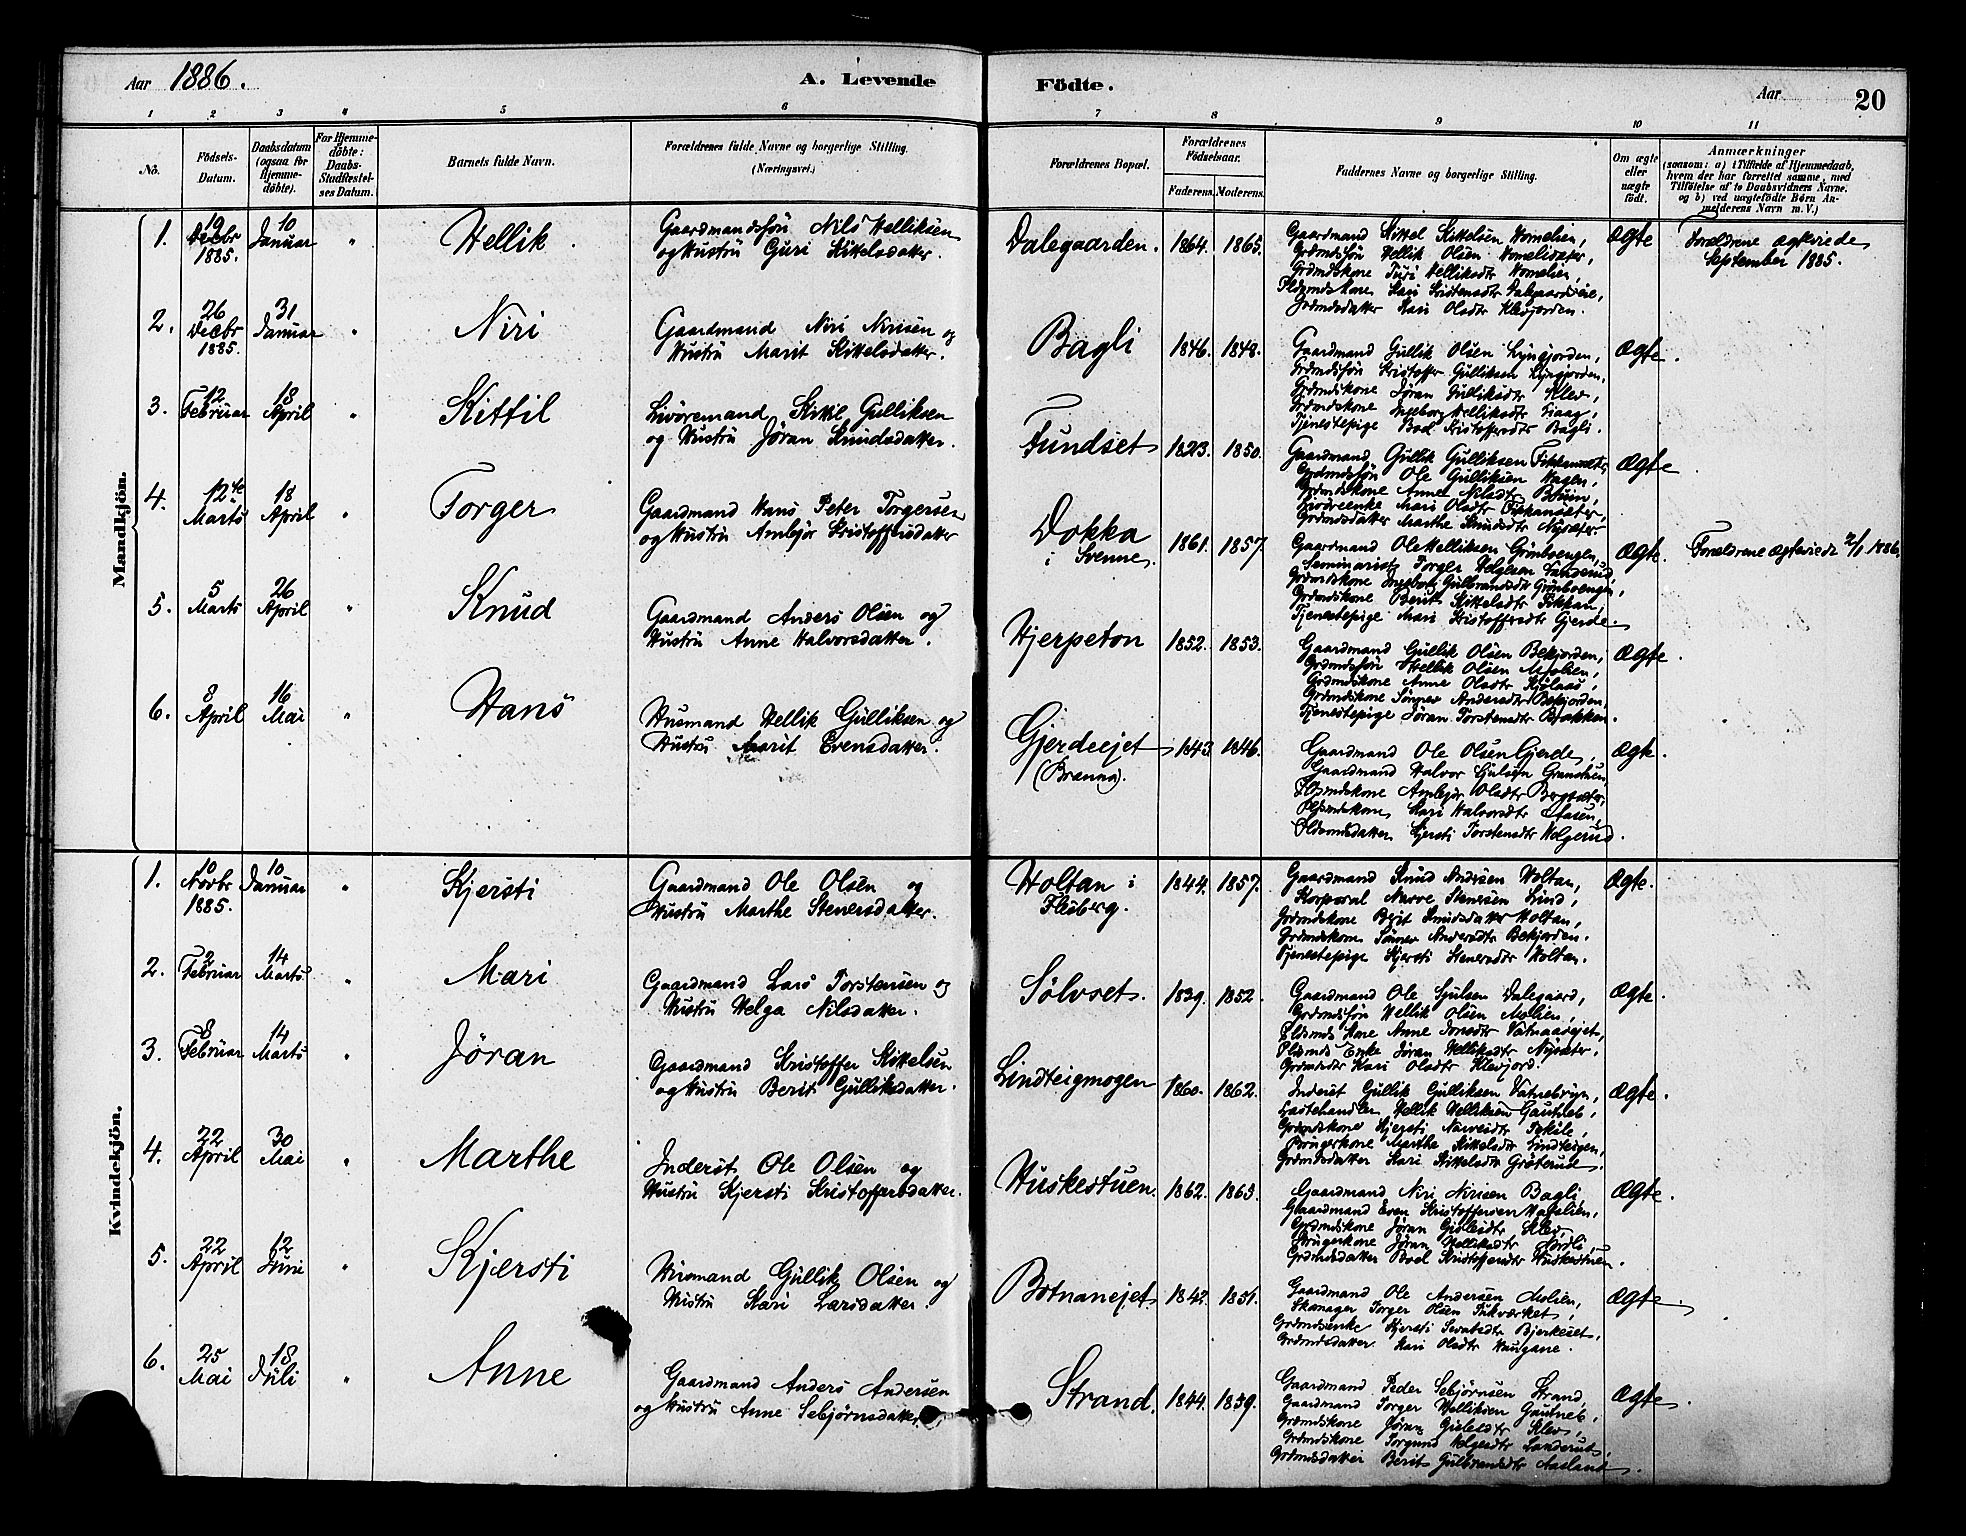 Aar 1886.
A. Levende
Födte.
Aar
20
1 2 3 4 5 6 7 8 9 10 11
No.
Födsels-Datum.
Daabsdatum (ogsaa for Hjemme-døbte).
For Hjemme-døbte: Daabs-Stadfæstel-ses Datum.
Barnets fulde Navn.
Forældrenes fulde Navne og borgerlige Stilling.
(Næringsvei.)
Forældrenes Bopæl.
Forældrenes Födselsaar.
Faderens. Moderens.
Faddernes Navne og borgerlige Stilling.
Om ægte eller uægte født.
Anmærkninger
(saasom: a) i Tilfælde af Hjemmedaab, hvem der har forrettet samme, med Tilföielse af to Daabsvidners Navne. og b) ved uægtefödte Börn An-melderens Navn m. V.)
Mandkjön.
1. 19 Decbr 1885. 10 Januar " Hellik.
Gaardmandsfön Nils Helliksen
og Hustru Guri Kittelsdatter.
Dalegaarden. 1864. 1865.
Gaardmand Kittel Kittelsen
Grdmdsfön Hellik Olsen
Grdmdskone Turi Helliksdtr
Grdmdsdatter Kari Olsdtr Klevjorden.
Ægte
Forældrene ægteviede
September 1885.
2. 26 Decbr 1885. 31 Januar " Niri
Gaardmand Niri Nirisen og
Hustru Marit Kittelsdatter.
Bagli 1846. 1848.
Gaardmand Gullik Olsen
Grdmdsfön Kristoffer Gulliksen
Grdmdskone Jöran Gulliksdtr Klev,
Grdmdskone Ingeborg Helliksdtr
Tjenestepige Boel Kristoffersdtr Bagli.
Ægte.
3. 12 Februar 18 April " Kittil
Livöremand Kittil Gulliksen
og Hustru Jöran Knudsdatter.
Fundset 1823. 1850.
Gaardmand Gullik Gulliksen
Grdmdsfön Ole Gulliksen
Grdmdskone Anne Nilsdtr
Mari Olsdtr
Grdmdsdatter Marthe Knudsdtr Nysæter
Ægte
4. 12te Marts 18 April " Torger
Gaardmand Hans Peter Torgersen
og Hustru Ambjør Kristoffersdatter
Dokka
i Svenne. 1861. 1857.
Gaardmand Ole Helliksen Grönboengen,
Seminarist Torger Helgesen Landerud,
Grdmdskone Ingeborg Gulbrandsdtr Grönboengen,
Grdmdskone Berit Kittelsdtr Fikkan,
Tjenestepige Mari Kristoffersdtr Gjerde.
Ægte.
Forældrene ægteviede 2/1 1886.
5. 5 Marts 26 April " Knud
Gaardmand Anders Olsen og
Hustru Anne Halvorsdatter.
Hjerpeton 1852. 1853.
Gaardmand Gullik Olsen Bekjorden,
Grdmdsfön Hellik Olsen Molien,
Grdmdskone Anne Olsdtr
Grdmdskone Sönnev Andersdtr Bekjorden,
Tjenestepige Jöran Torstensdtr Bakken.
Ægte.
6. 8 April 16 Mai " Hans
Husmand Hellik Gulliksen og
Hustru Marit Evensdatter.
Gjerdeejet
(Brenna). 1843. 1846.
Gaardmand Ole Olsen Gjerde,
Gaardmand Halvor Gjulsen
Ambjør Olsdtr
Kari Halvorsdtr
Kjersti Torstensdtr Helgerud.
Ægte.
Kvindekjön.
1. 10 Novbr 1885. 10 Januar " Kjersti
Gaardmand Ole Olsen og
Hustru Marthe Stenersdatter.
Holtan i
Flesberg. 1844. 1857.
Gaardmand Knud Andersen Holtan,
Korporal Narve Stenersen Lind,
Grdmdskone Berit Knudsdatter Holtan,
Grdmdskone Sönnev Andersdtr Bekjorden.
Tjenestepige Kjersti Stenersdtr Holtan.
Ægte.
2. 2 Februar 14 Marts " Mari
Gaardmand Lars Torstensen og
Hustru Helga Nilsdatter.
Sölvset. 1839. 1852.
Gaardmand Ole Gjulsen Dalegaard,
Grdmdsfön Hellik Olsen Molien,
Kone Anne Jonsdtr Vatnaasejet,
Enke Jöran Helliksdtr Nysæter,
Grdmdsdtr Kari Olsdtr Klevjord.
Ægte.
3. 8 Februar 14 Marts " Jöran
Gaardmand Kristoffer Kittelsen
og Hustru Berit Gulliksdatter.
Lindteigmogen 1860. 1862.
Inderst Gullik Gulliksen Vatnebryn,
Lastehandler Hellik Helliksen Gautneb,
Grdmdskone Kjersti Narvesdtr
Brugerkone Marthe Kittelsdtr Lindteigen,
Grdmdsdatter Kari Kittelsdtr Gröterud.
Ægte.
4. 22 April 30 Mai " Marthe
Inderst Ole Olsen og
Hustru Kjersti Kristoffersdatter.
Huskestuen. 1862. 1863.
Gaardmand Niri Nirisen Bagli,
Gaardmand Even Kristoffersen
Grdmdskone Jöran Gislesdtr Klev,
Brugerkone Jöran Helliksdtr
Grdmdsdatter Boel Kristoffersdtr Huskestuen.
Ægte.
5. 22 April 12 Juni " Kjersti
Husmand Gullik Olsen og
Hustru Kari Larsdatter.
Botnanejet 1842. 1851.
Gaardmand Ole Andersen Molien,
Skomager Torger Olsen
Grdmdsenke Kjersti
Grdmdsdatter Kari Olsdtr Haugane.
Ægte.
6. 25 Mai 18 Juli " Anne
Gaardmand Anders Andersen
og Hustru Anne Sebjörnsdatter
Strand. 1844. 1859.
Gaardmand Peder Sebjörnsen Strand,
Gaardmand Torger Helliksen Gautneb,
Grdmdskone Jöran Gislesdtr Klev,
Grdmdskone Torgund Helgesdtr Landerud,
Grdmdsdatter Berit Gulbrandsdtr Aasland.
Ægte.